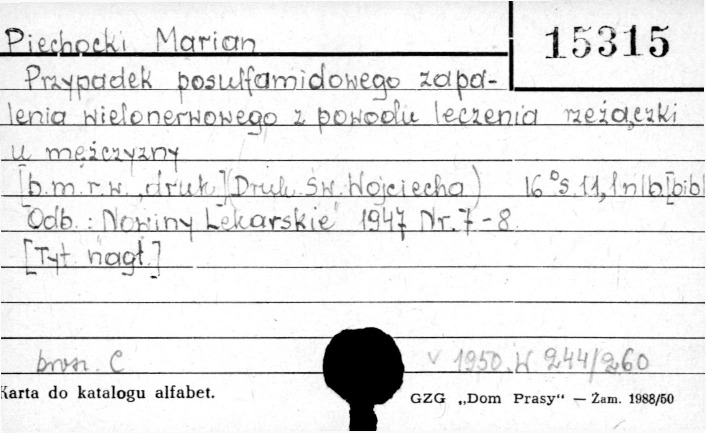 Piechocki Marian
15315
Przypadek posulfamidowego zapa-
lenia wielonerwowego z powodu leczenia rzeżączki
u mężczyzny
[b.m.r.w., druk] (Druk. św. Wojciecha) 16° s. 11, 1 nlb [bibl
Odb.: "Nowiny Lekarskie" 1947 Nr. 7-8
[Tyt. nagł.]
brosz. C
V 1950. W 244/260
Karta do katalogu alfabet.
GZG „Dom Prasy“ — Żam. 1988/50